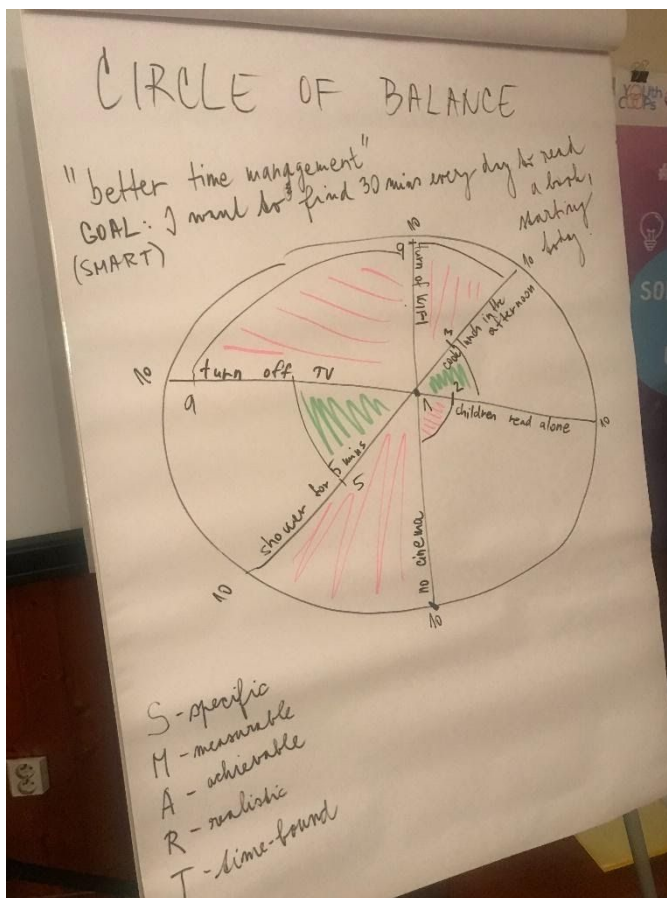 CIRCLE OF BALANCE
"better time management"
GOAL: I want to find 30 mins every day to read
a book,
starting
today.
(SMART)
10
9
turn off WI-FI
10
3
cook lunch in the
afternoon
10
9
turn off TV
1
2
children read alone
10
shower for 5 mins
5
10
no cinema
10
S - specific
M - measurable
A - achievable
R - realistic
T - time-bound
YOUth
COOPs
SO